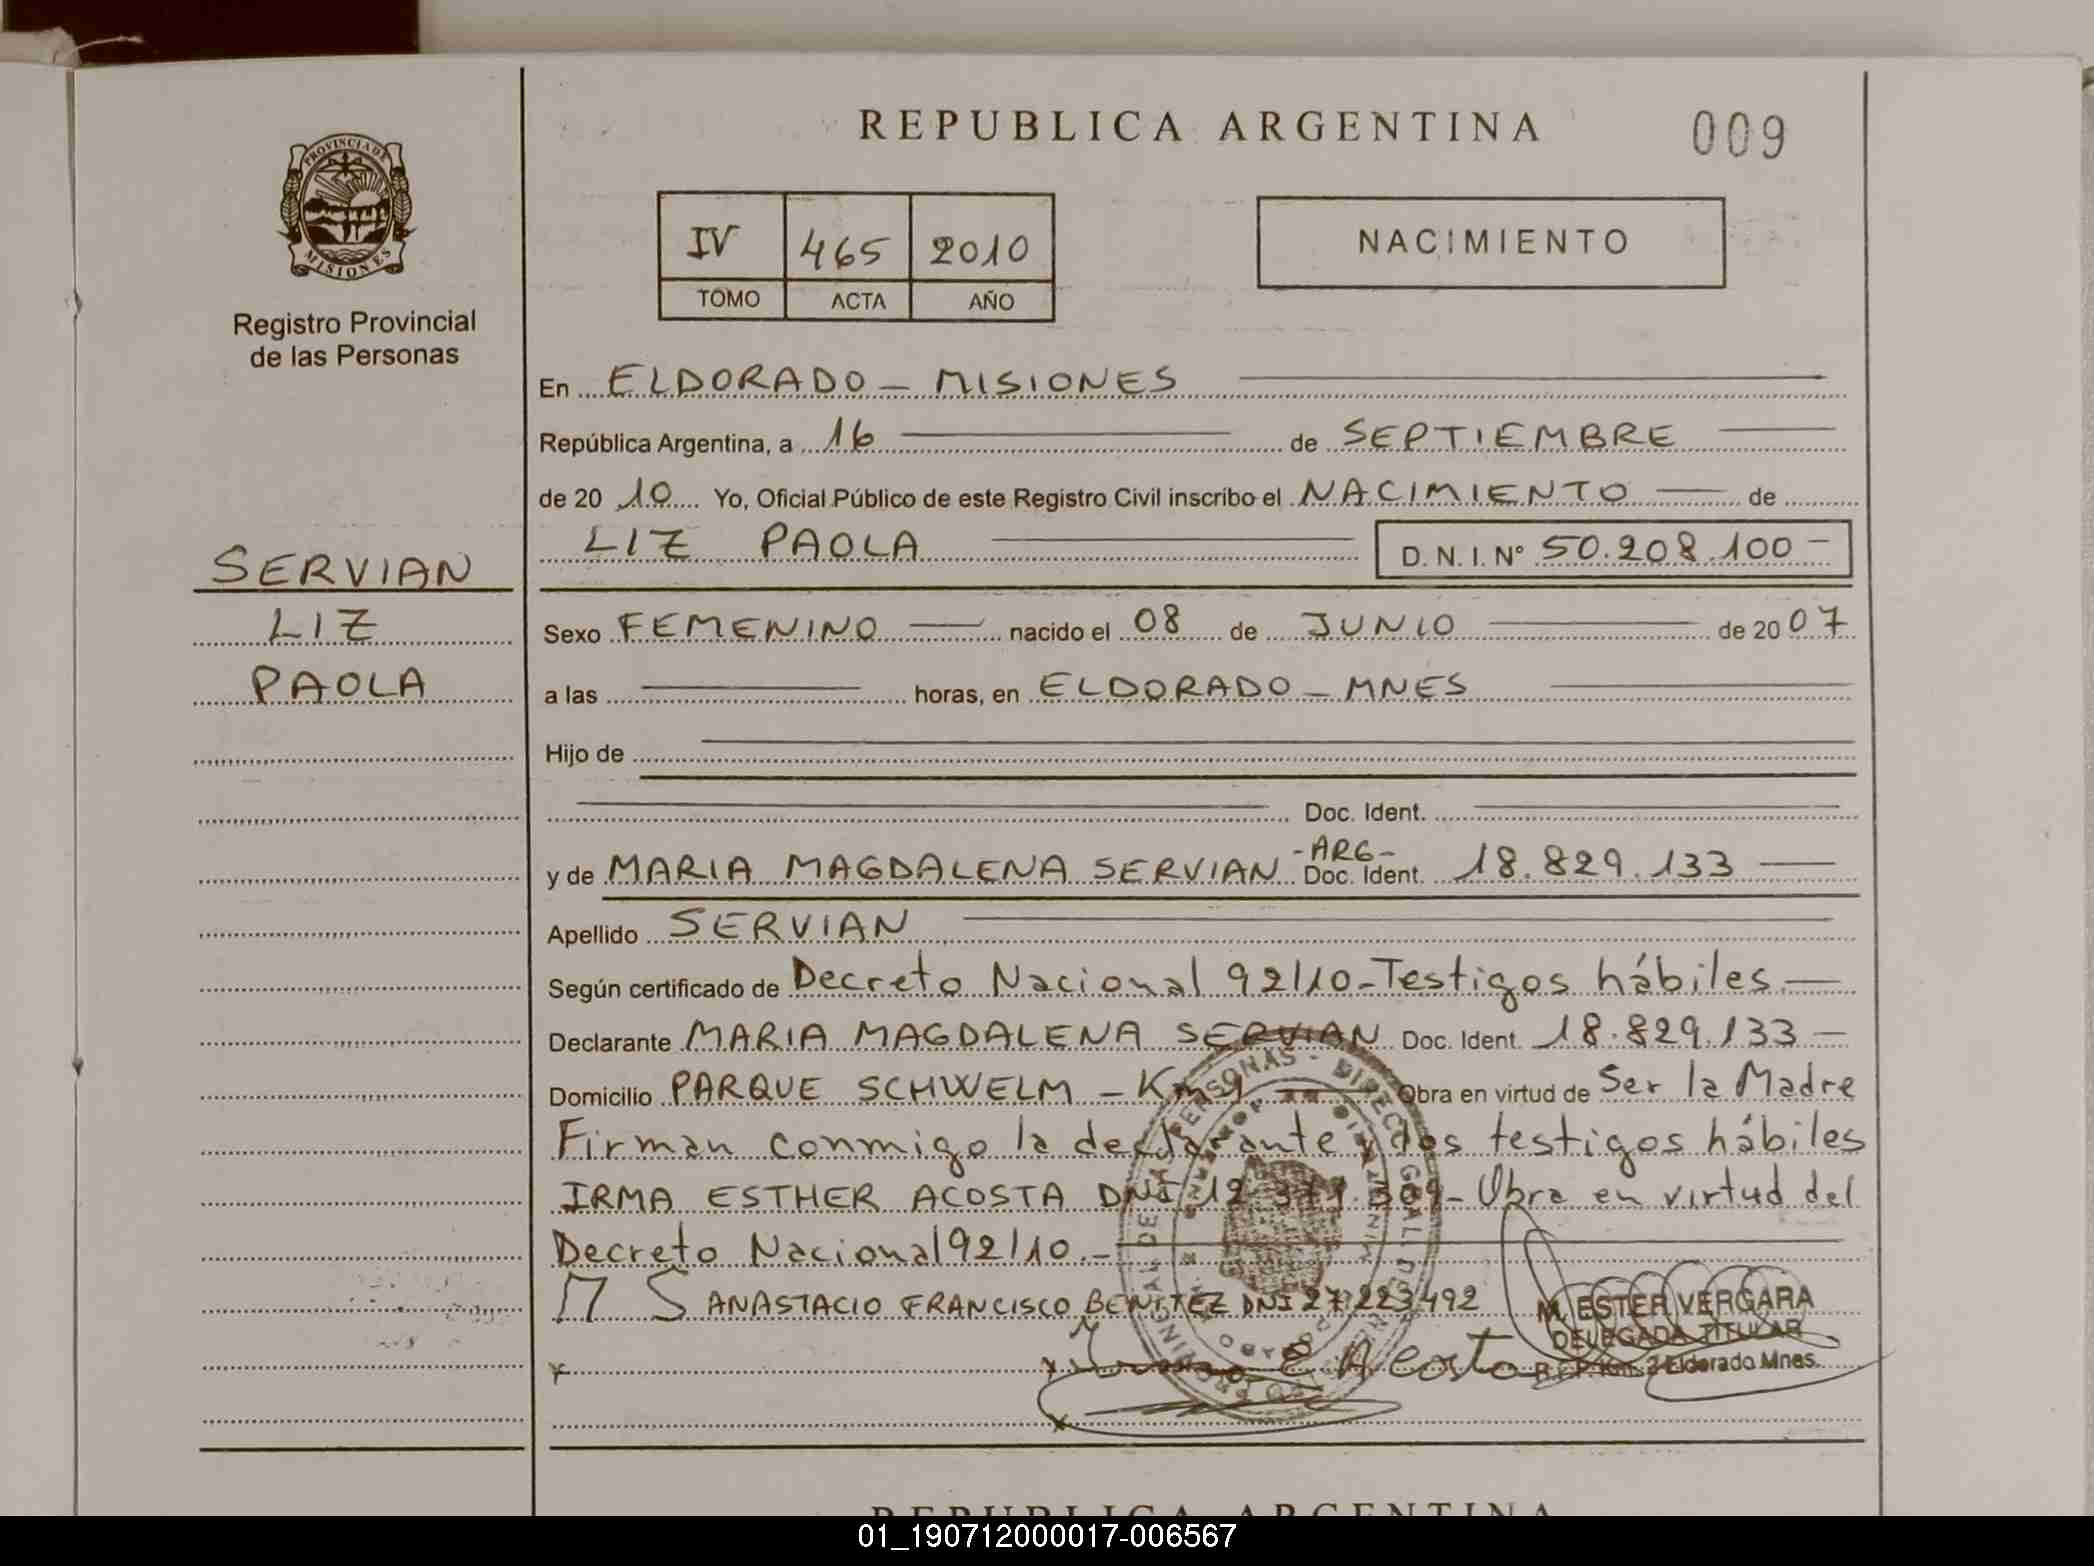 REPUBLICA ARGENTINA
009
PROVINCIA DE
MISIONES
Registro Provincial
de las Personas
IV 465 2010
TOMO ACTA AÑO
NACIMIENTO
En ELDORADO - MISIONES
República Argentina, a 16 de SEPTIEMBRE
de 20 10 Yo, Oficial Público de este Registro Civil inscribo el NACIMIENTO de
LIZ PAOLA D. N. I. Nº 50.208.100 -
SERVIAN
LIZ
PAOLA
Sexo FEMENINO nacido el 08 de JUNIO de 20 07
a las horas, en ELDORADO - MNES
Hijo de
Doc. Ident.
y de MARIA MAGDALENA SERVIAN - ARG - Doc. Ident. 18.829.133
Apellido SERVIAN
Según certificado de Decreto Nacional 92/10 - Testigos hábiles
Declarante MARIA MAGDALENA SERVIAN Doc. Ident. 18.829.133 -
Domicilio PARQUE SCHWELM - Obra en virtud de Ser la Madre
Firman conmigo la declarante y dos testigos hábiles
IRMA ESTHER ACOSTA DNI - Obra en virtud del
Decreto Nacional 92/10. -
M S ANASTACIO FRANCISCO BENITEZ DNI 27223492
M. ESTER VERGARA
DELEGADA TITULAR
Eldorado Mnes.
E Acosta
REPUBLICA ARGENTINA
01_190712000017-006567